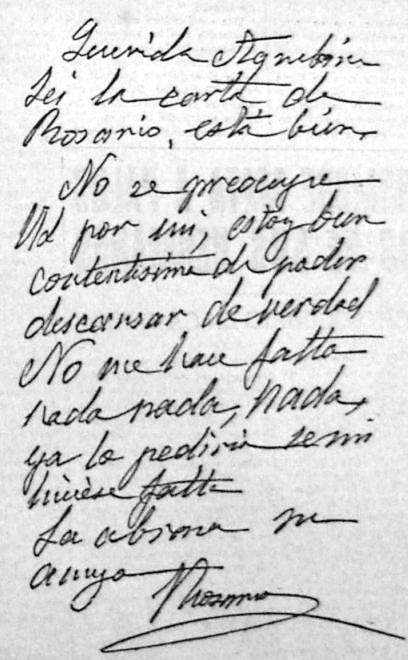 Querida Agribina
Lei la carta de
Rosario, está bien.
No se preocupe
Ud por mi, estoy bien
contentisima de poder
descansar de verdad
No me hace falta
nada nada, nada,
ya lo pediria se mi
hiciese falta
La abraza su
amiga